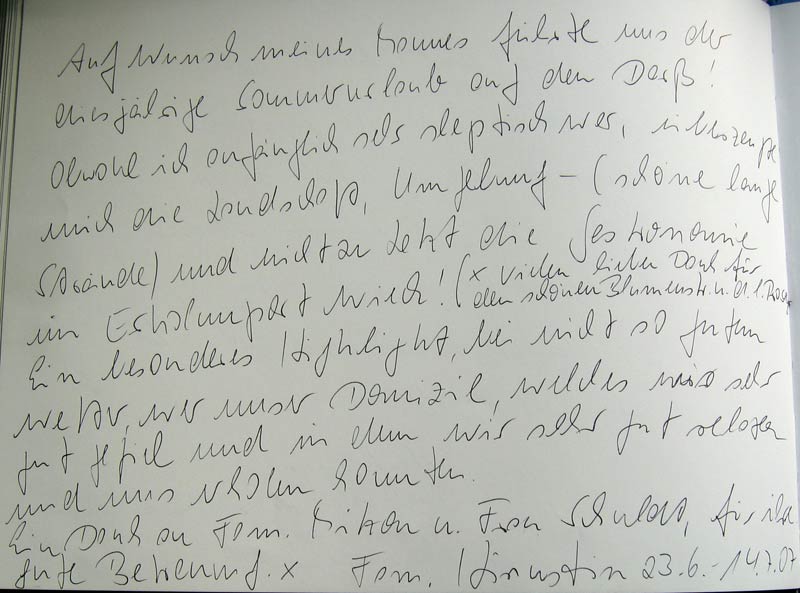 Auf Wunsch meines Mannes führte uns der
diesjährige Sommerurlaub auf den Darß!
Obwohl ich anfänglich sehr skeptisch war,
mich die Landschaft, Umgebung – (schöne lange
Strände) und nicht zu letzt die Gastronomie
im Erholungsort Wieck! (x Vielen lieben Dank für
den schönen Blumenstr. u. d.
Ein besonderes Highlight, bei nicht so gutem
Wetter, war unser Domizil, welches mir sehr
gut gefiel und in dem wir sehr gut relaxen
und uns erholen konnten.
Ein Dank an Fam. u. Frau Schuldt, für ihre
gute Betreuung. x Fam. 23.6.-14.7.07